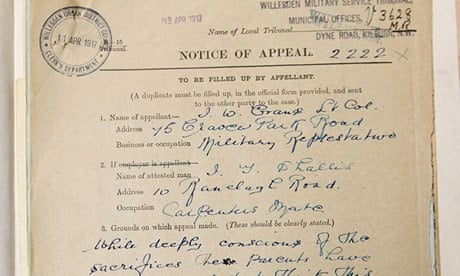 WILLESDEN URBAN DISTRICT COUNCIL
11 APR. 1917
CLERK'S DEPARTMENT
19 APR. 1917
WILLESDEN MILITARY SERVICE TRIBUNAL,
MUNICIPAL OFFICES,
DYNE ROAD, KILBURN, N.W.
3628
M.R
Name of Local Tribunal
15
Tribunal.
NOTICE OF APPEAL. 2222 X
TO BE FILLED UP BY APPELLANT.
(A duplicate must be filled up, in the official form provided, and sent
to the other party to the case.)
1. Name of appellant— J. W. Lt Col.
Address 45 Craven Park Road
Business or occupation Military Representative
2. If employer is appellant—
Name of attested man J. T. Challis
Address 10 Ranelagh Road.
Occupation Carpenters Mate
3. Grounds on which appeal made. (These should be clearly stated.)
While deeply conscious of the
sacrifices these parents have